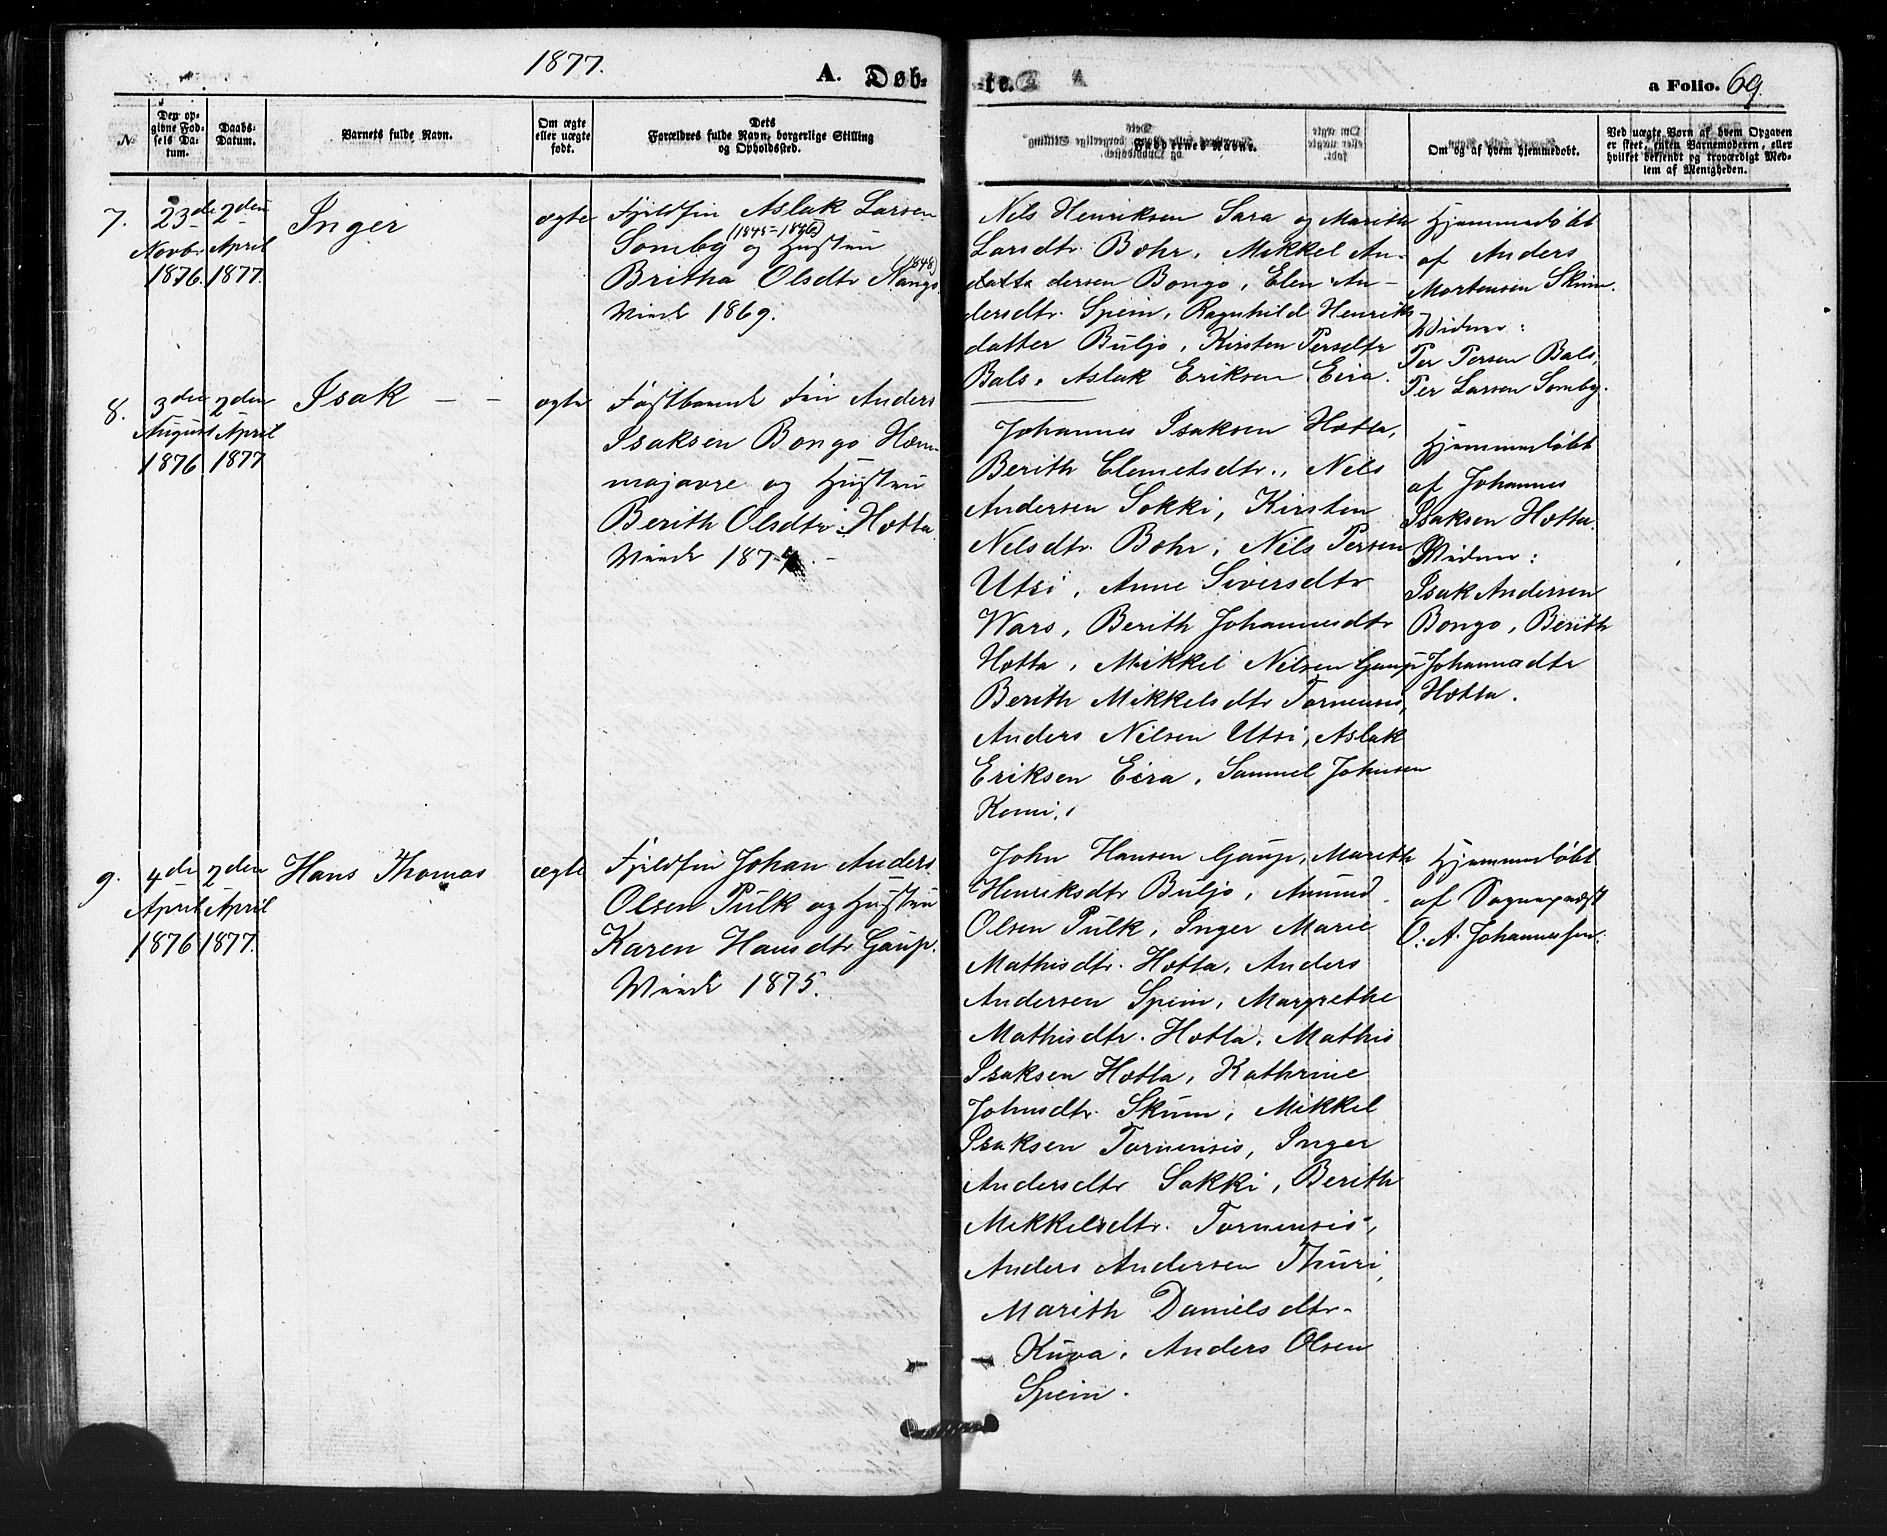 1877.
A. Døb-
te.
a Folio. 69.
№
Den op-
givne Fød-
sels Da-
tum.
Daabs-
Datum.
Barnets fulde Navn.
Om ægte
eller uægte
født.
Dets
Forældres fulde Navn, borgerlige Stilling
og Opholdssted.
Faddernes Navne.
Om og af hvem hjemmedøbt.
Ved uægte Børn af hvem Opgaven
er skeet, enten Barnemoderen, eller
hvilket bekjendt og troværdigt Med-
lem af Menigheden.
7.
23de
Novbr
1876.
2den
April
1877.
Inger
ægte
Fjeldfin Aslak Larsen
(1845-1846)
Somby og Hustru
(1848)
Britha Olsdtr Nango.
Viede 1869.
Nils Henriksen Sara og Marith
Larsdtr. Bohr, Mikkel An-
datta dersen Bongo, Elen An-
dersdtr. Spein, Ragnhild Henriks
datter Buljo, Kirsten Persdtr
Bals, Aslak Eriksen Eira.
Hjemmedøbt
af Anders
Mortensen Skum.
Vidner:
Per Persen Bals,
Per Larsen Somby.
8.
3die
August
1876
2den
April
1877
Isak - -
ægte
Fastboende Fin Anders
Isaksen Bongo Hem-
majavre og Hustru
Berith Olsdtr. Hætta.
Viede 1874. -
Johannes Isaksen Hætta,
Berith Clemetsdtr., Nils
Andersen Sokki, Kirsten
Nelsdtr. Bohr, Nils Persen
Utsi, Anne Siversdtr
Wars, Berith Johannesdtr
Hætta, Mikkel Nilsen Gaup
Berith Mikkelsdtr Tornensis,
Anders Nilsen Utsi, Aslak
Eriksen Eira, Samuel Johnsen
Komi.
Hjemmedøbt
af Johannes
Isaksen Hætta.
Vidner:
Isak Andersen
Bongo, Berith
Johannesdtr
Hætta.
9.
4de
April
1876
2den
April
1877.
Hans Thomas
ægte
Fjeldfin Johan Anders
Olsen Pulk og Hustru
Karen Hansdtr Gaup.
Viede 1875.
John Hansen Gaup, Marith
Henriksdtr Buljo, Amund
Olsen Pulk, Inger Marie
Mathisdtr. Hætta, Anders
Andersen Spein, Margrethe
Mathisdtr. Hætta, Mathis
Isaksen Hætta, Kathrine
Johnsdtr. Skum, Mikkel
Isaksen Tornensis, Inger
Andersdtr Sakki, Berith
Mikkelsdtr. Tornensis,
Anders Andersen Thuri,
Marith Danielsdtr.
Kuva, Anders Olsen
Spein.
Hjemmedøbt
af Sognepræst
O. A. Johannessen.